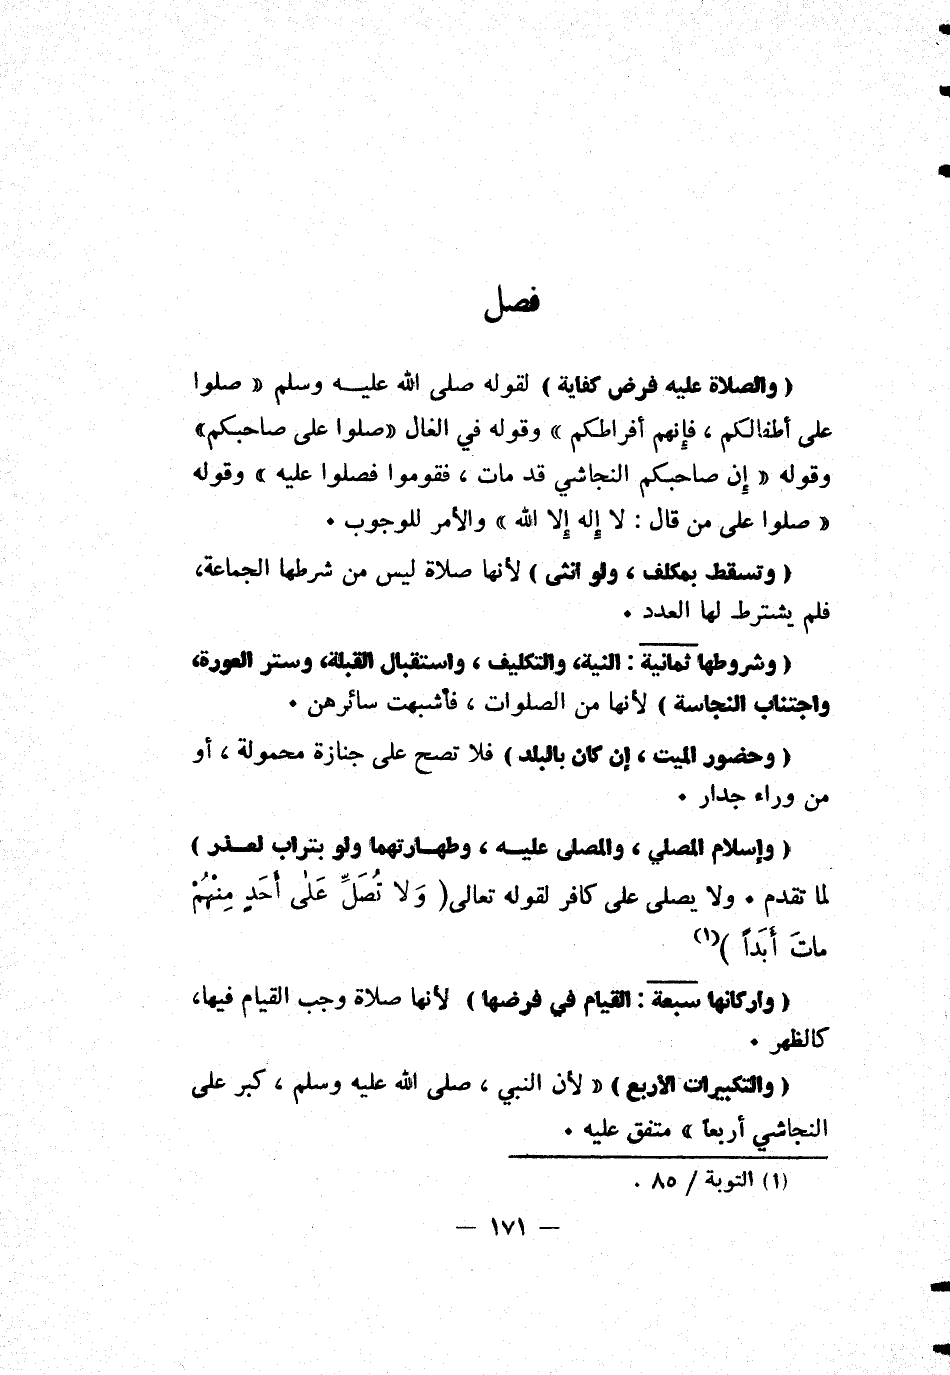 فصل
( والصلاة عليه فرض كفاية ) لقوله صلى الله عليـــه وسلم « صلوا
على أطفالكم ، فإنهم أفراطكم » وقوله في الغال «صلوا على صاحبكم»
وقوله « إن صاحبكم النجاشي قد مات ، فقوموا فصلوا عليه » وقوله
« صلوا على من قال : لا إله إلا الله » والأمر للوجوب .
( وتسقط بمكلف ، ولو انثى ) لأنها صلاة ليس من شرطها الجماعة،
فلم يشترط لها العدد .
( وشروطها ثمانية : النية، والتكليف ، واستقبال القبلة، وستر العورة،
واجتناب النجاسة ) لأنها من الصلوات ، فأشبهت سائرهن .
( وحضور الميت ، إن كان بالبلد ) فلا تصح على جنازة محمولة ، أو
من وراء جدار .
( وإسلام المصلي ، والمصلى عليــه ، وطهــارتهما ولو بتراب لعــذر )
لما تقدم . ولا يصلى على كافر لقوله تعالى( وَلا تُصَلِّ عَلىٰ أَحَدٍ مِنْهُمْ
ماتَ أَبَداً )(١)
( واركانها سبعة : القيام في فرضها ) لأنها صلاة وجب القيام فيها،
كالظهر .
( والتكبيرات الأربع ) « لأن النبي ، صلى الله عليه وسلم ، كبر على
النجاشي أربعاً » متفق عليه .
(١) التوبة / ٨٥ .
— ١٧١ —